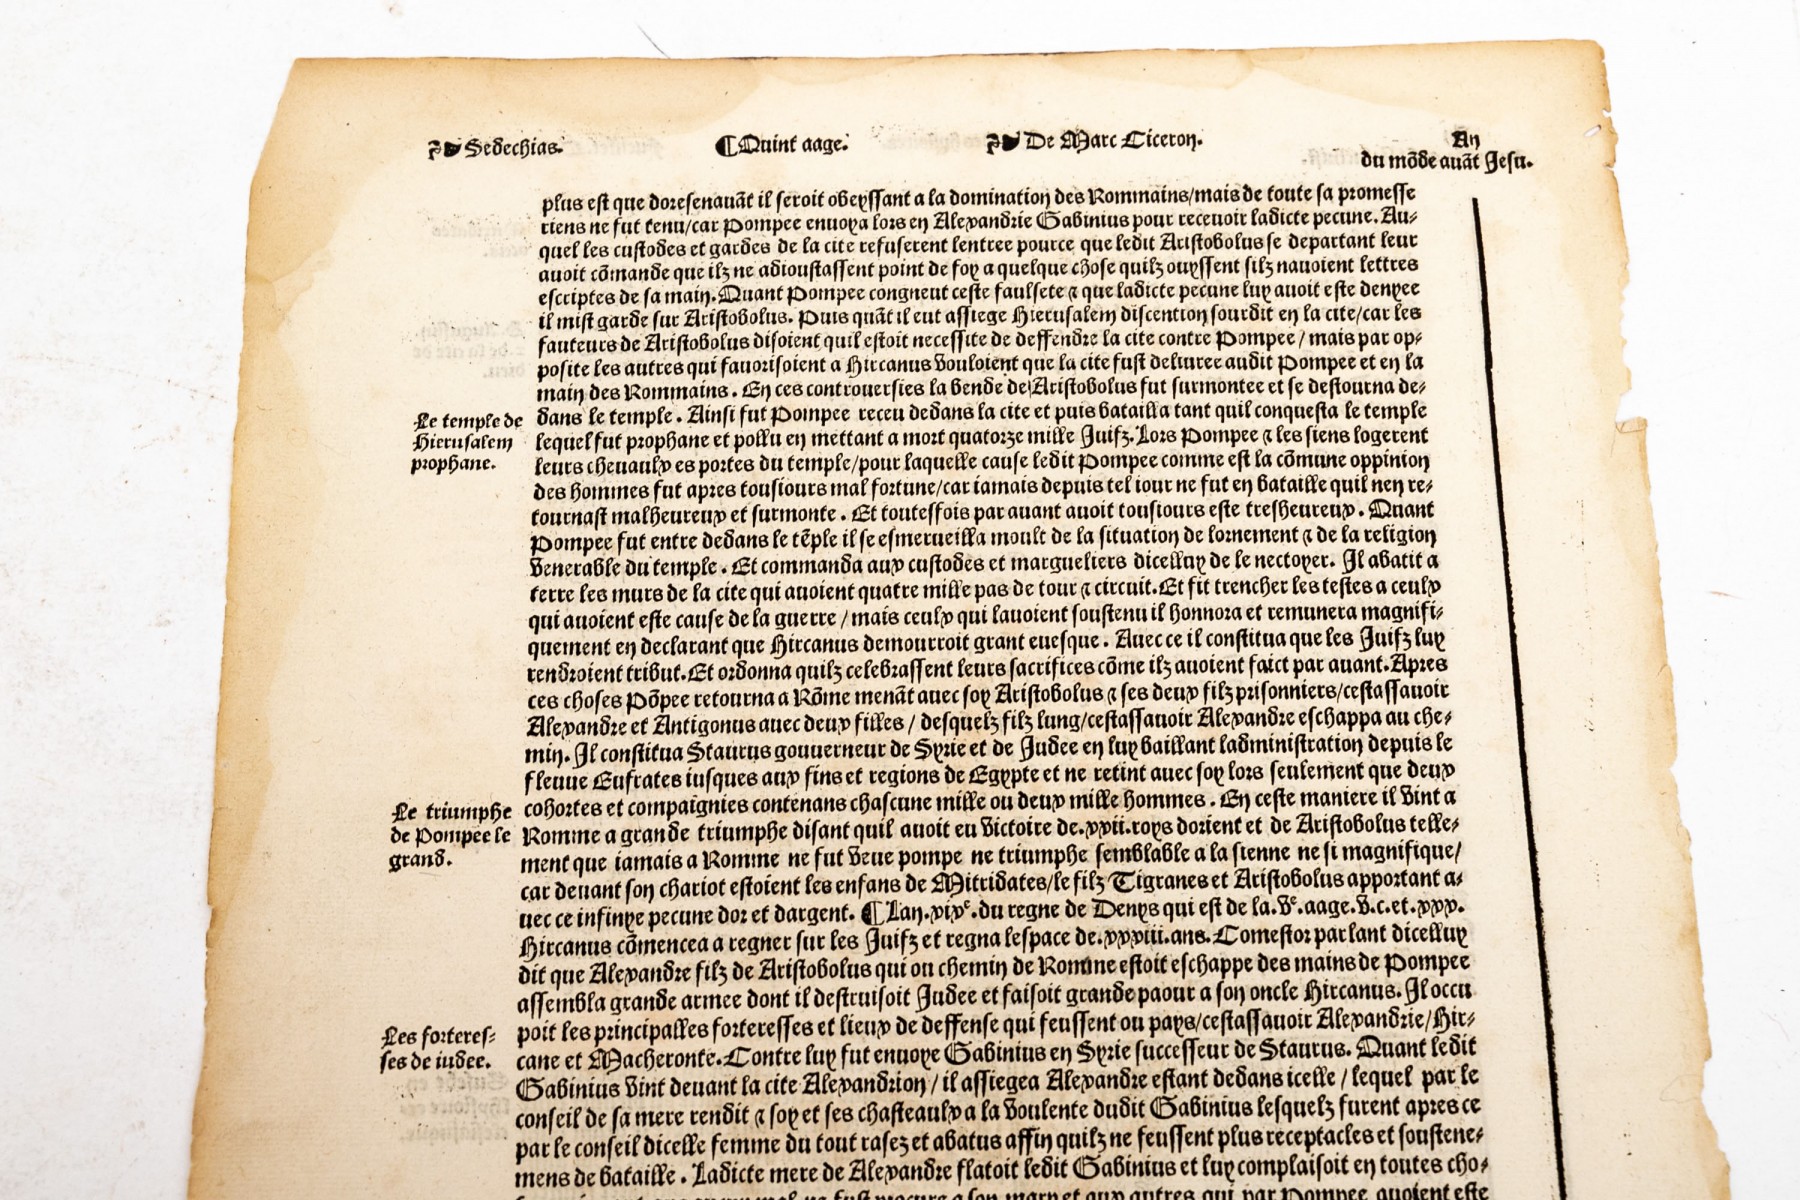 Sedechias.
¶ Quint aage.
De Marc Ciceron.
An
du mõde auãt Jesu.
plus est que doresenauãt il seroit obeyssant a la domination des Rommains/mais de toute sa promesse
riens ne fut tenu/car Pompee enuoya lors en Alexandrie Gabinius pour receuoir ladicte pecune. Au-
quel les custodes et gardes de la cite refuserent lentree pource que ledit Aristobolus se departant leur
auoit cõmande que ilz ne adioustassent point de foy a quelque chose quilz ouyssent silz nauoient lettres
escriptes de sa main. Quant Pompee congneut ceste faulsete ⁊ que ladicte pecune luy auoit este denyee
il mist garde sur Aristobolus. Puis quãt il eut assiege Hierusalem discention sourdit en la cite/car les
fauteurs de Aristobolus disoient quil estoit necessite de deffendre la cite contre Pompee / mais par op-
posite les autres qui fauorisoient a Hircanus vouloient que la cite fust deliuree audit Pompee et en la
main des Rommains. En ces controuersies la bende de Aristobolus fut surmontee et se destourna de-
Le temple de
Hierusalem
prophane.
dans le temple. Ainsi fut Pompee receu dedans la cite et puis batailla tant quil conquesta le temple
lequel fut prophane et pollu en mettant a mort quatorze mille Juifz. Lors Pompee ⁊ les siens logerent
leurs cheuaulx es portes du temple/pour laquelle cause ledit Pompee comme est la cõmune oppinion
des hommes fut apres tousiours mal fortune/car iamais depuis tel iour ne fut en bataille quil nen re-
tournast malheureux et surmonte. Et toutesfois par auant auoit tousiours este tresheureux. Quant
Pompee fut entre dedans le tẽple il se esmerueilla moult de la situation de lornement ⁊ de la religion
venerable du temple. Et commanda aux custodes et margueliers dicelluy de le nectoyer. Il abatit a
terre les murs de la cite qui auoient quatre mille pas de tour ⁊ circuit. Et fit trencher les testes a ceulx
qui auoient este cause de la guerre / mais ceulx qui lauoient soustenu il honnora et remunera magnifi-
quement en declarant que Hircanus demourroit grant euesque. Auec ce il constitua que les Juifz luy
rendroient tribut. Et ordonna quilz celebrassent leurs sacrifices cõme ilz auoient faict par auant. Apres
ces choses Põpee retourna a Rõme menãt auec soy Aristobolus ⁊ ses deux filz prisonniers/cestassauoir
Alexandre et Antigonus auec deux filles / desquelz filz lung/cestassauoir Alexandre eschappa au che-
min. Il constitua Staurus gouuerneur de Syrie et de Judee en luy baillant ladministration depuis le
fleuue Eufrates iusques aux fins et regions de Egypte et ne retint auec soy lors seulement que deux
Le triumphe
de Pompee le
grand.
cohortes et compaignies contenans chascune mille ou deux mille hommes. En ceste maniere il vint a
Romme a grande triumphe disant quil auoit eu victoire de .xxii. roys dorient et de Aristobolus telle-
ment que iamais a Romme ne fut veue pompe ne triumphe semblable a la sienne ne si magnifique/
car deuant son chariot estoient les enfans de Mitridates/le filz Tigranes et Aristobolus apportant a-
uec ce infinye pecune dor et dargent. ¶ Lan .xixe. du regne de Denys qui est de la .ve. aage .v.c. et .xxx.
Hircanus cõmencea a regner sur les Juifz et regna lespace de .xxxiii. ans. Comestor parlant dicelluy
dit que Alexandre filz de Aristobolus qui ou chemin de Romme estoit eschappe des mains de Pompee
assembla grande armee dont il destruisoit Judee et faisoit grande paour a son oncle Hircanus. Il occu
Les forteres-
ses de iudee.
poit les principalles forteresses et lieux de deffense qui feussent ou pays/cestassauoir Alexandrie/Hir-
cane et Macheronte. Contre luy fut enuoye Gabinius en Syrie successeur de Staurus. Quant ledit
Gabinius vint deuant la cite Alexandrion / il assiegea Alexandre estant dedans icelle / lequel par le
conseil de sa mere rendit ⁊ soy et ses chasteaulx a la voulente dudit Gabinius lesquelz furent apres ce
par le conseil dicelle femme du tout rasez et abatus affin quilz ne feussent plus receptacles et soustene-
mens de bataille. Ladicte mere de Alexandre flatoit ledit Gabinius et luy complaisoit en toutes cho-
mal ne fust procure a son mary et aux autres qui par Pompee auoient este